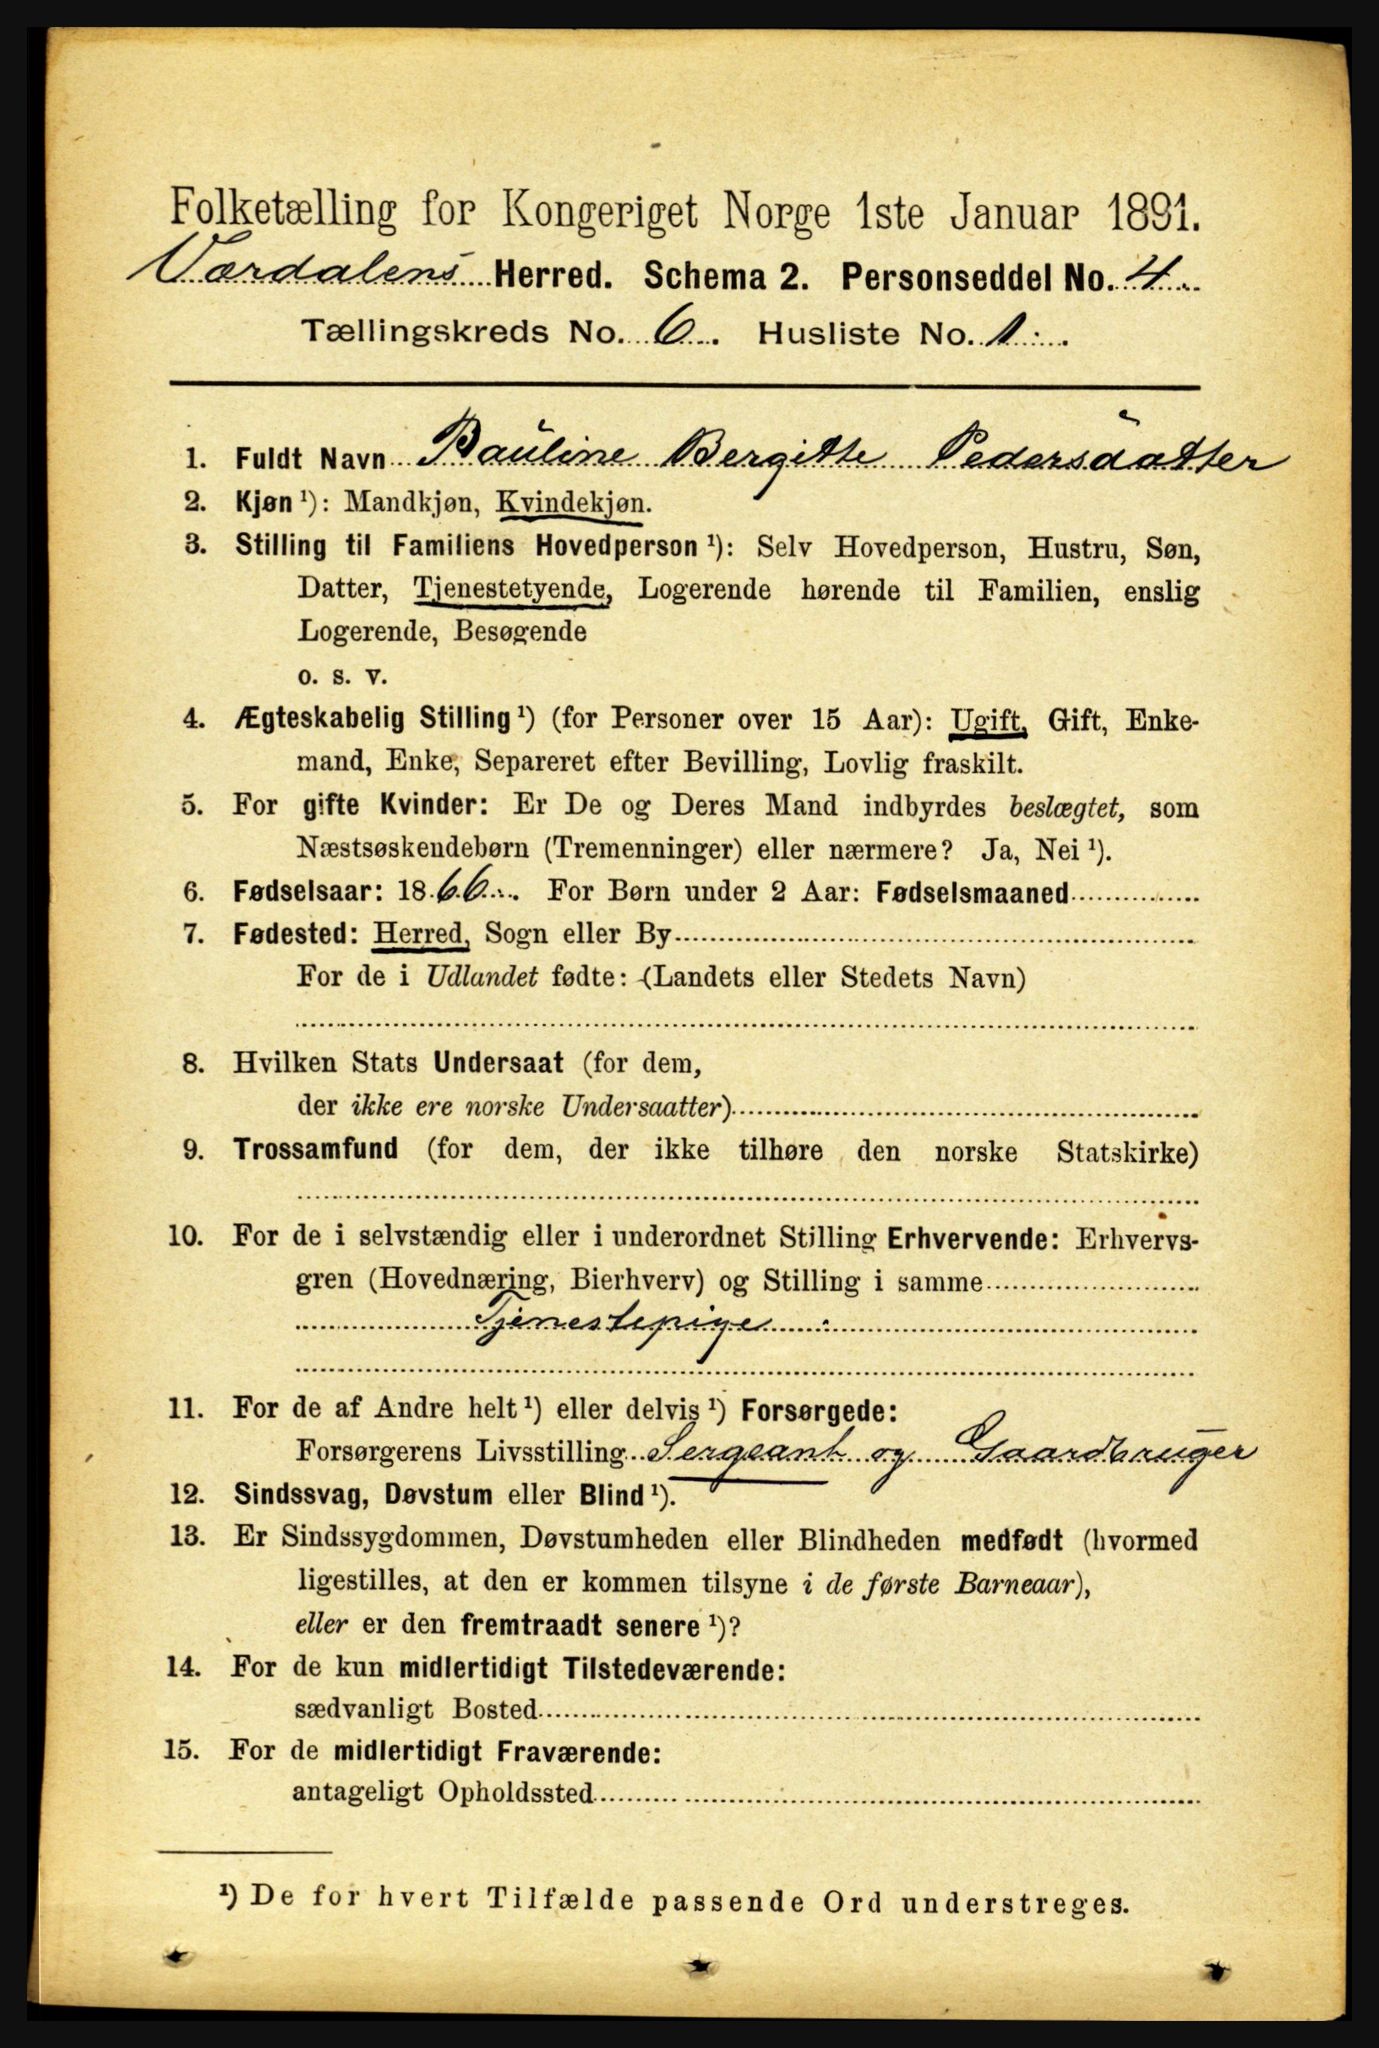 Folketælling for Kongeriget Norge 1ste Januar 1891.
Værdalens Herred. Schema 2. Personseddel No. 4
Tællingskreds No. 6. Husliste No. 1.
1. Fuldt Navn Pauline Bergitte Pedersdatter
2. Kjøn ¹): Mandkjøn, Kvindekjøn.
3. Stilling til Familiens Hovedperson ¹): Selv Hovedperson, Hustru, Søn,
Datter, Tjenestetyende, Logerende hørende til Familien, enslig
Logerende, Besøgende
o. s. v.
4. Ægteskabelig Stilling ¹) (for Personer over 15 Aar): Ugift, Gift, Enke-
mand, Enke, Separeret efter Bevilling, Lovlig fraskilt.
5. For gifte Kvinder: Er De og Deres Mand indbyrdes beslægtet, som
Næstsøskendebørn (Tremenninger) eller nærmere? Ja, Nei ¹).
6. Fødselsaar: 1866. For Børn under 2 Aar: Fødselsmaaned
7. Fødested: Herred, Sogn eller By
For de i Udlandet fødte: (Landets eller Stedets Navn)
8. Hvilken Stats Undersaat (for dem,
der ikke ere norske Undersaatter)
9. Trossamfund (for dem, der ikke tilhøre den norske Statskirke)
10. For de i selvstændig eller i underordnet Stilling Erhvervende: Erhvervs-
gren (Hovednæring, Bierhverv) og Stilling i samme
Tjenestepige
11. For de af Andre helt ¹) eller delvis ¹) Forsørgede:
Forsørgerens Livsstilling Sergeant og Gaardbruger
12. Sindssvag, Døvstum eller Blind ¹).
13. Er Sindssygdommen, Døvstumheden eller Blindheden medfødt (hvormed
ligestilles, at den er kommen tilsyne i de første Barneaar),
eller er den fremtraadt senere ¹)?
14. For de kun midlertidigt Tilstedeværende:
sædvanligt Bosted
15. For de midlertidigt Fraværende:
antageligt Opholdssted
¹) De for hvert Tilfælde passende Ord understreges.